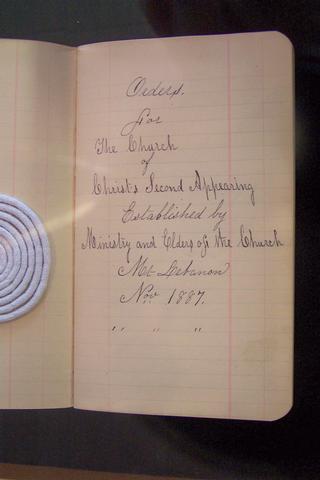 Orders.
For
The Church
of
Christs Second Appearing
Established by
Ministry and Elders of the Church
Mt Lebanon
Nov. 1887.
,, ,, ,,